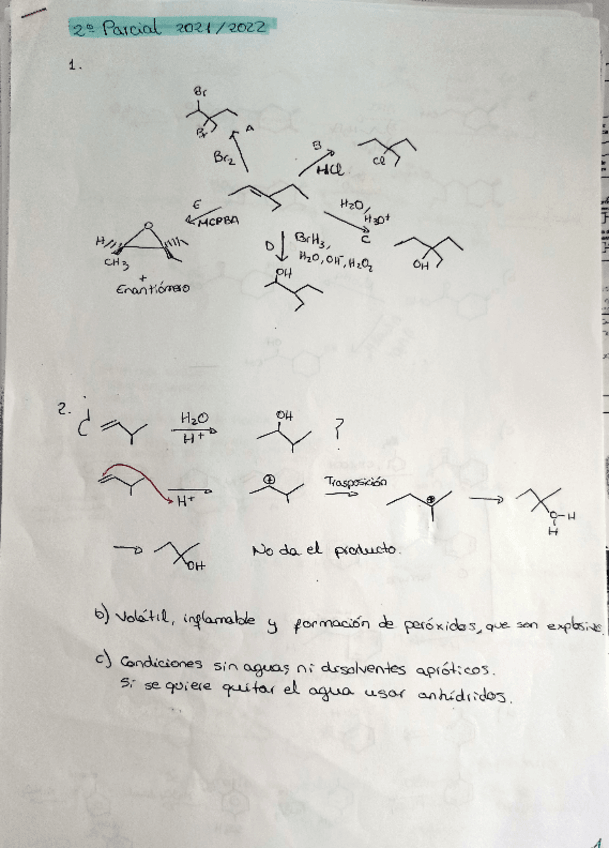 2º Parcial 2021/2022
1.
Br
Br
A
Br2
B
HCl
Cl
E
MCPBA
H2O,
H3O+
C
O
H
CH3
+
Enantiómero
D
BrH3,
H2O, OH-, H2O2
OH
OH
2. ¿
H2O
H+
OH
?
H+
+
Trasposición
+
O-H
H
OH
No da el producto.
b) Volátil, inflamable y formación de peróxidos, que son explosivos.
c) Condiciones sin aguas ni disolventes apróticos.
Si se quiere quitar el agua usar anhídridos.